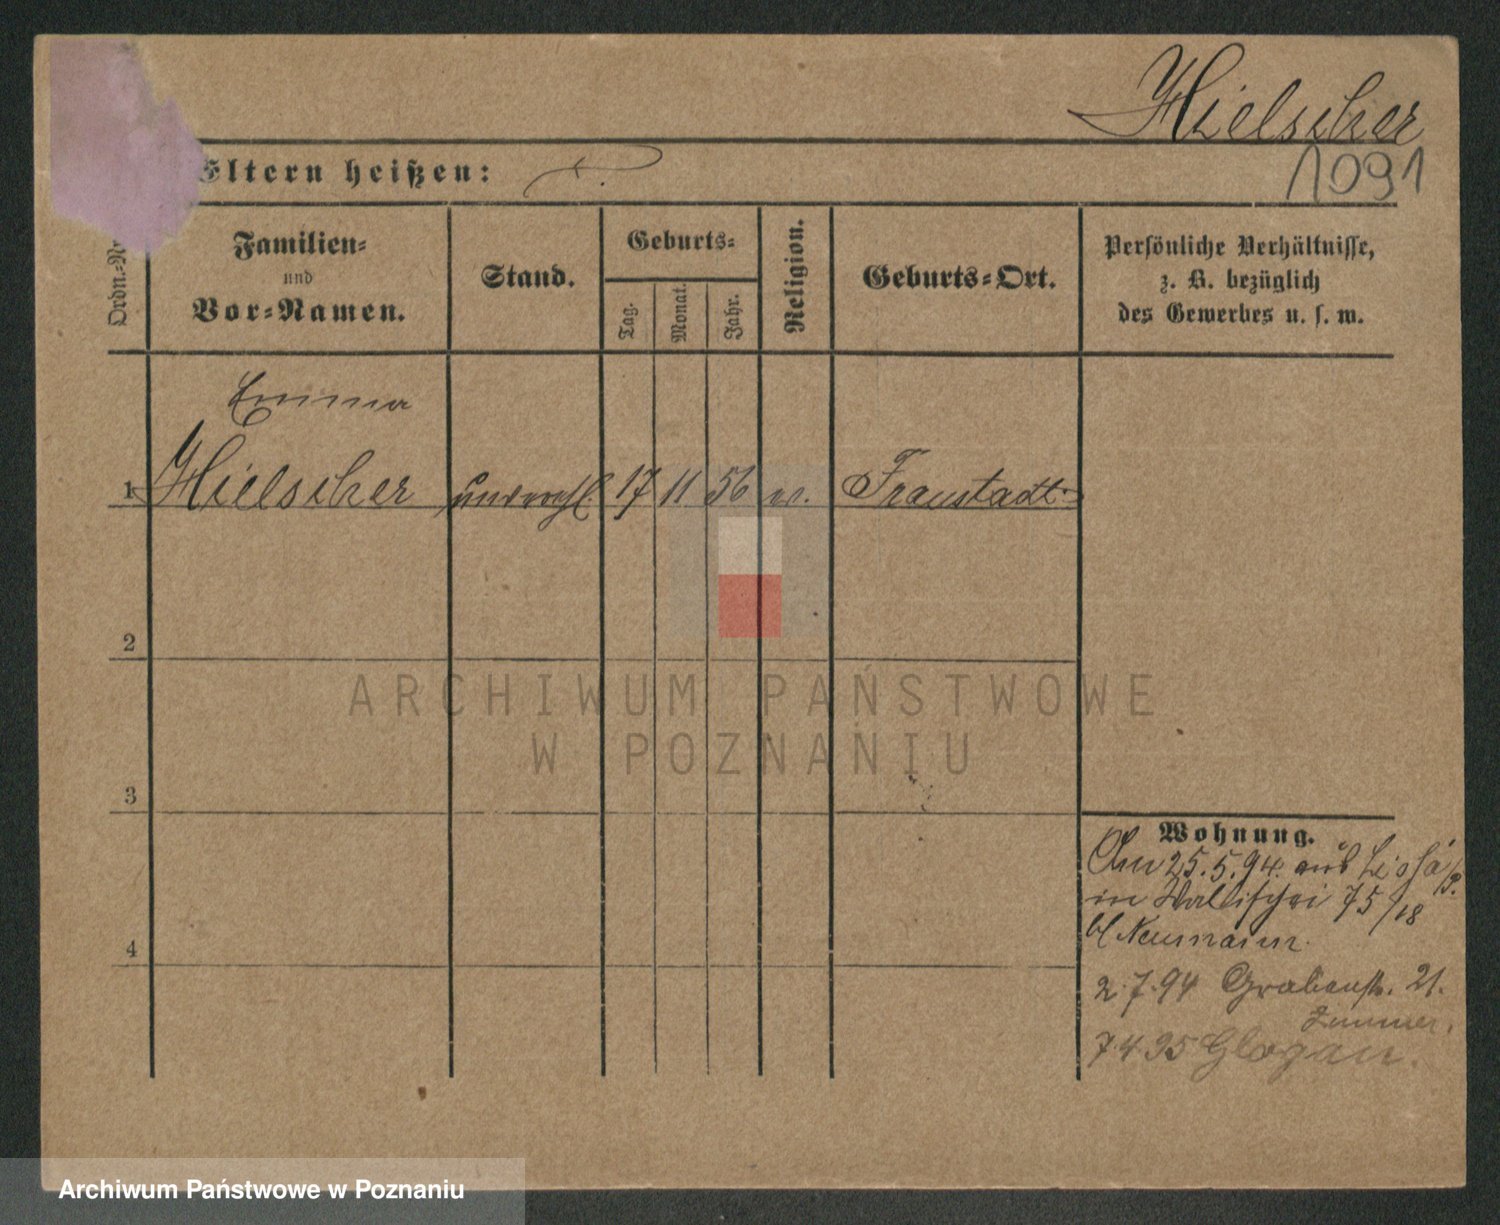 Hielscher
1091
Eltern heißen:
Ordn.-Nr
Familien-
und
Vor-Namen.
Stand.
Geburts-
Tag.
Monat.
Jahr.
Religion.
Geburts-Ort.
Persönliche Verhältnisse,
z. B. bezüglich
des Gewerbes u. s. w.
Emma
1 Hielscher unverehl. 17 11 56 Fraustadt
2
3
4
ARCHIWUM PAŃSTWOWE
W POZNANIU
Wohnung.
Am 25.5.94. aus
in Wallischei 75/18
b/ Neumann.
2.7.94 Grabenstr. 21.
Zimmer.
7.4.95 Glogau.
Archiwum Państwowe w Poznaniu